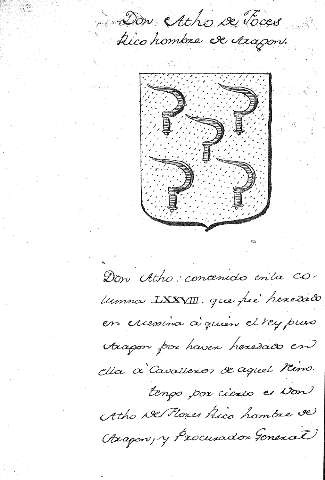 Don Atho de Foces
Rico hombre de Aragon.
Don Atho: contenido en la Co-
lumna LXXVIII. que fué heredado
en Mesina á quien el Rey puso
Aragon por haver heredado en
ella á Cavalleros de aquel Reino.
tengo por cierto es Don
Atho de Flozes Rico hombre de
Aragon, y Procurador General